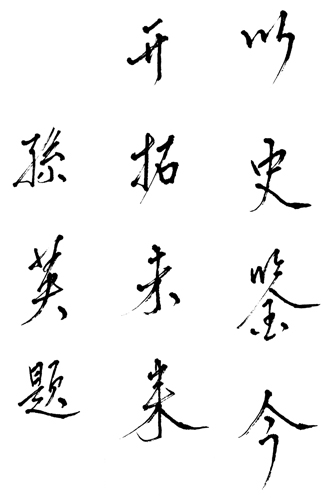 以史鉴今
开拓未来
孫英题